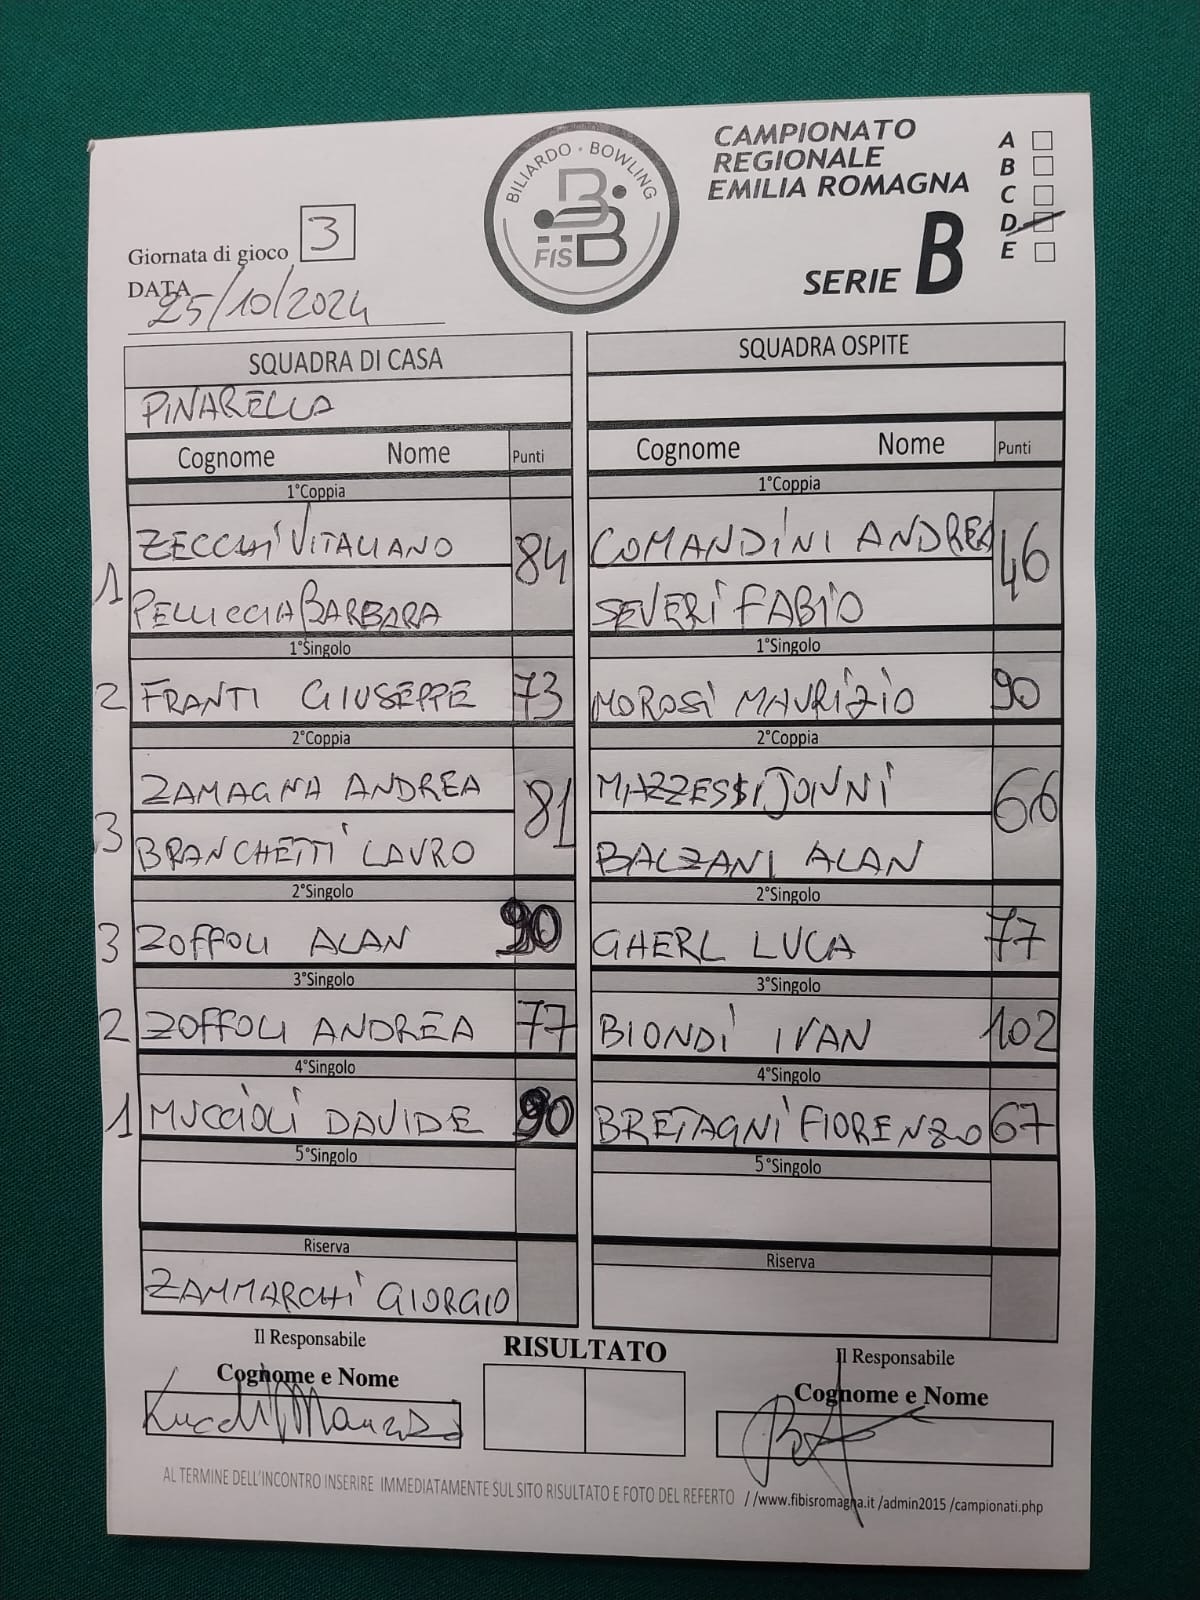 BILIARDO · BOWLING
FIS
CAMPIONATO
REGIONALE
EMILIA ROMAGNA
SERIE B
A
B
C
D
E
Giornata di gioco 3
DATA
25/10/2024
SQUADRA DI CASA
PINARELLA
Cognome Nome Punti
1°Coppia
ZECCHI VITALIANO
84
1
PELLICCIA BARBARA
1°Singolo
2 FRANTI GIUSEPPE 73
2°Coppia
ZAMAGNA ANDREA
81
3
BRANCHETTI LAURO
2°Singolo
3 ZOFFOLI ALAN 90
3°Singolo
2 ZOFFOLI ANDREA 77
4°Singolo
1 MUCCIOLI DAVIDE 90
5°Singolo
Riserva
ZAMMARCHI GIORGIO
SQUADRA OSPITE
Cognome Nome Punti
1°Coppia
COMANDINI ANDREA
46
SEVERI FABIO
1°Singolo
MOROSI MAURIZIO 90
2°Coppia
MAZZESSI JONNI
66
BALZANI ALAN
2°Singolo
GHERL LUCA 77
3°Singolo
BIONDI IVAN 102
4°Singolo
BRETAGNI FIORENZO 67
5°Singolo
Riserva
Il Responsabile
Cognome e Nome
RISULTATO
Il Responsabile
Cognome e Nome
AL TERMINE DELL'INCONTRO INSERIRE IMMEDIATAMENTE SUL SITO RISULTATO E FOTO DEL REFERTO //www.fibisromagna.it /admin2015 /campionati.php